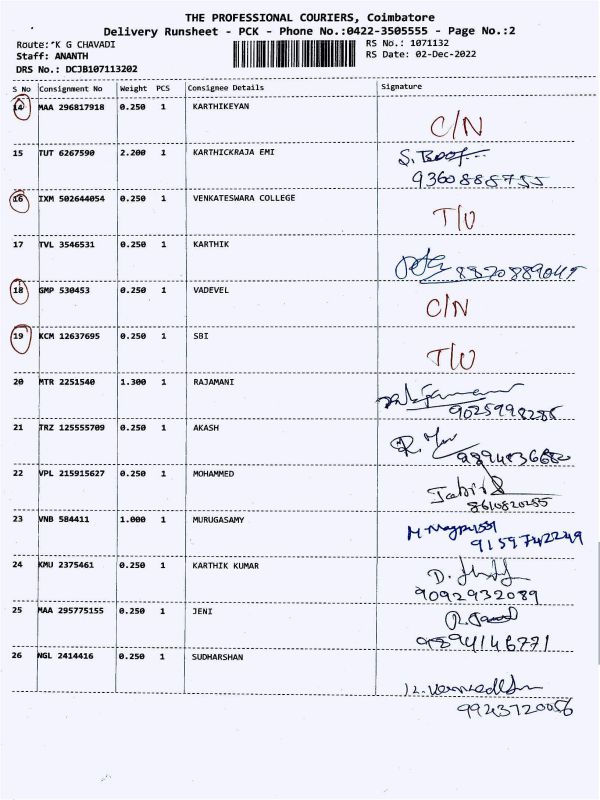 THE PROFESSIONAL COURIERS, Coimbatore
Delivery Runsheet - PCK - Phone No.:0422-3505555 - Page No.:2
Route: K G CHAVADI RS No.: 1071132
Staff: ANANTH RS Date: 02-Dec-2022
DRS No.: DCJB107113202
S No Consignment No Weight PCS Consignee Details Signature
14 MAA 296817918 0.250 1 KARTHIKEYAN
C/N
15 TUT 6267590 2.200 1 KARTHICKRAJA EMI
9360888755
16 IXM 502644054 0.250 1 VENKATESWARA COLLEGE
T/U
17 TVL 3546531 0.250 1 KARTHIK
18 GMP 530453 0.250 1 VADEVEL
C/N
19 KCM 12637695 0.250 1 SBI
T/U
20 MTR 2251540 1.300 1 RAJAMANI
9025998285
21 TRZ 125555709 0.250 1 AKASH
22 VPL 215915627 0.250 1 MOHAMMED
8610820285
23 VNB 584411 1.000 1 MURUGASAMY
9159742249
24 KMU 2375461 0.250 1 KARTHIK KUMAR
9092932089
25 MAA 295775155 0.250 1 JENI
9894146771
26 NGL 2414416 0.250 1 SUDHARSHAN
9943720056